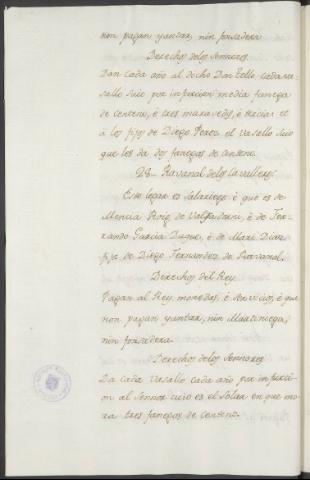 non pagan yantar, nin fonsadera
Derechos de los Sennores
Dan cada año al dicho Don Tello, cada va-
sallo suio por infurcion media fanega
de centeno, è tres maravedis, è
à los fijos de Diego Perez el vasallo suio
que les da dos fanegas de centeno.
Ravanal de los Cavalleros
Este logar es Solariego è que es de
Mencia Roiz de Valfadoni, è de Fer-
rando Garcia Duque, è de Mari Diaz
fija de Diego Fernandez de Ravanal.
Derechos del Rey
Pagan al Rey monedas, è servicios, è que
non pagan yantar, nin Martiniega,
nin fonsadera.
Derechos de los Sennores
Da cada vasallo cada año por infurcion
on al Sennor cuio es el Solar en que mo-
ra tres fanegas de centeno.